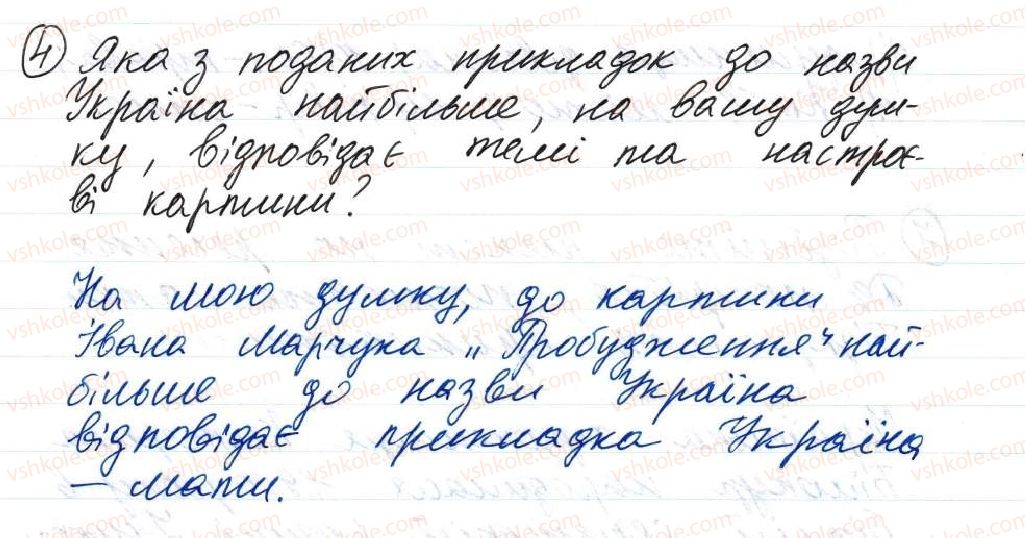 ④ Яка з поданих прикладок до назви
Україна найбільше, на вашу дум-
ку, відповідає темі та настроє-
ві картини?
На мою думку, до картини
Івана Марчука „Пробудження" най-
більше до назви Україна
відповідає прикладка Україна
– мати.